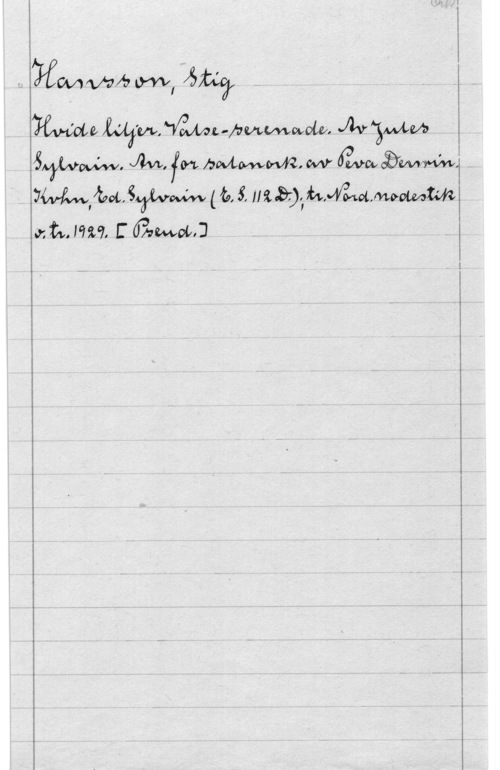 Hansson, Stig
Hvide liljer. Valse-serenade. Av Jules
Sylvain. Arr. for salonork. av Peva Derwin.
Kvhn, Ed. Sylvain (E. S. 112 D.); tr. Nord. nodestik
o. tr. 1929. [Pseud.]